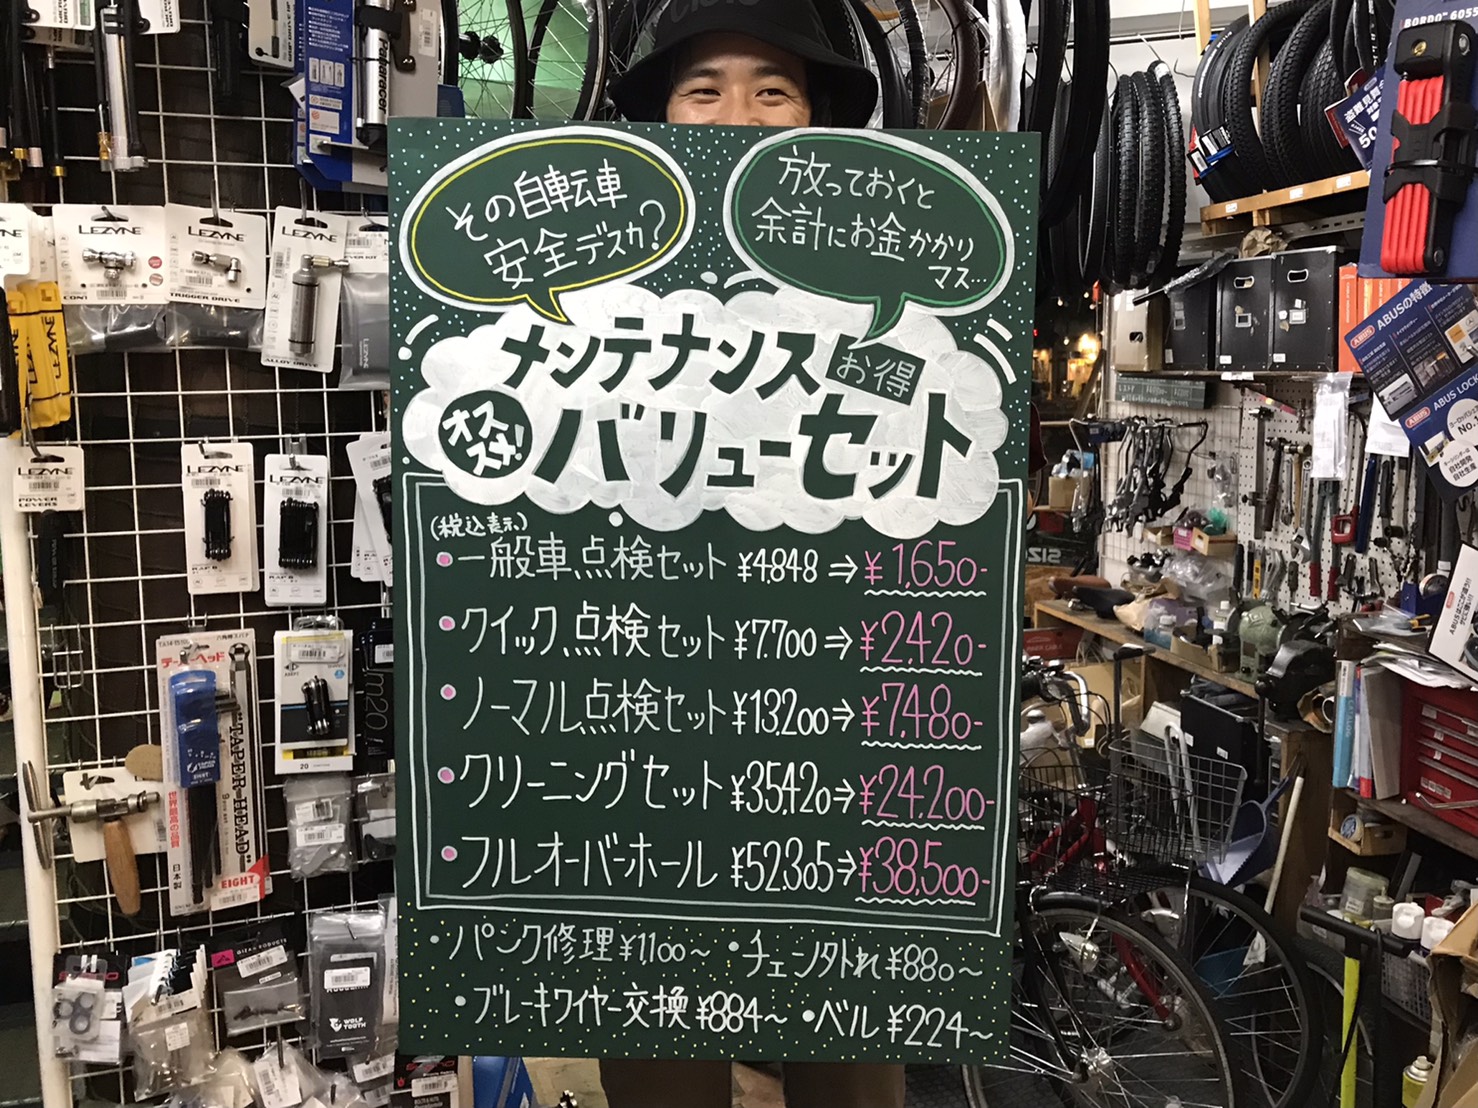 その自転車
安全デスカ?
放っておくと
余計にお金かかり
マス…
メンテナンス
お得
オス
スメ!
バリューセット
(税込表示)
・一般車点検セット ¥4.848⇒¥1,650-
・クイック点検セット ¥7.700⇒¥2,420-
・ノーマル点検セット ¥13.200⇒¥7,480-
・クリーニングセット ¥35.420⇒¥24.200-
・フルオーバーホール ¥52.305⇒¥38,500-
・パンク修理 ¥1.100〜 ・チェーン外れ ¥880〜
・ブレーキワイヤー交換 ¥884〜 ・ベル ¥224〜
BORDO™ 6055
LEZYNE
LEZYNE
LEZYNE
TRIGGER DRIVE
ALLOY DRIVE
LEZYNE
POWER
LEVERS
LEZYNE
RAP 6
LEZYNE
テーパーヘッド
"TAPER-HEAD"
世界最高の品質
日本製
EIGHT
20
WOLF
TOOTH
ABUSの特徴
ABUS
ABUS LOCK
No.1
自社開発
自社生産